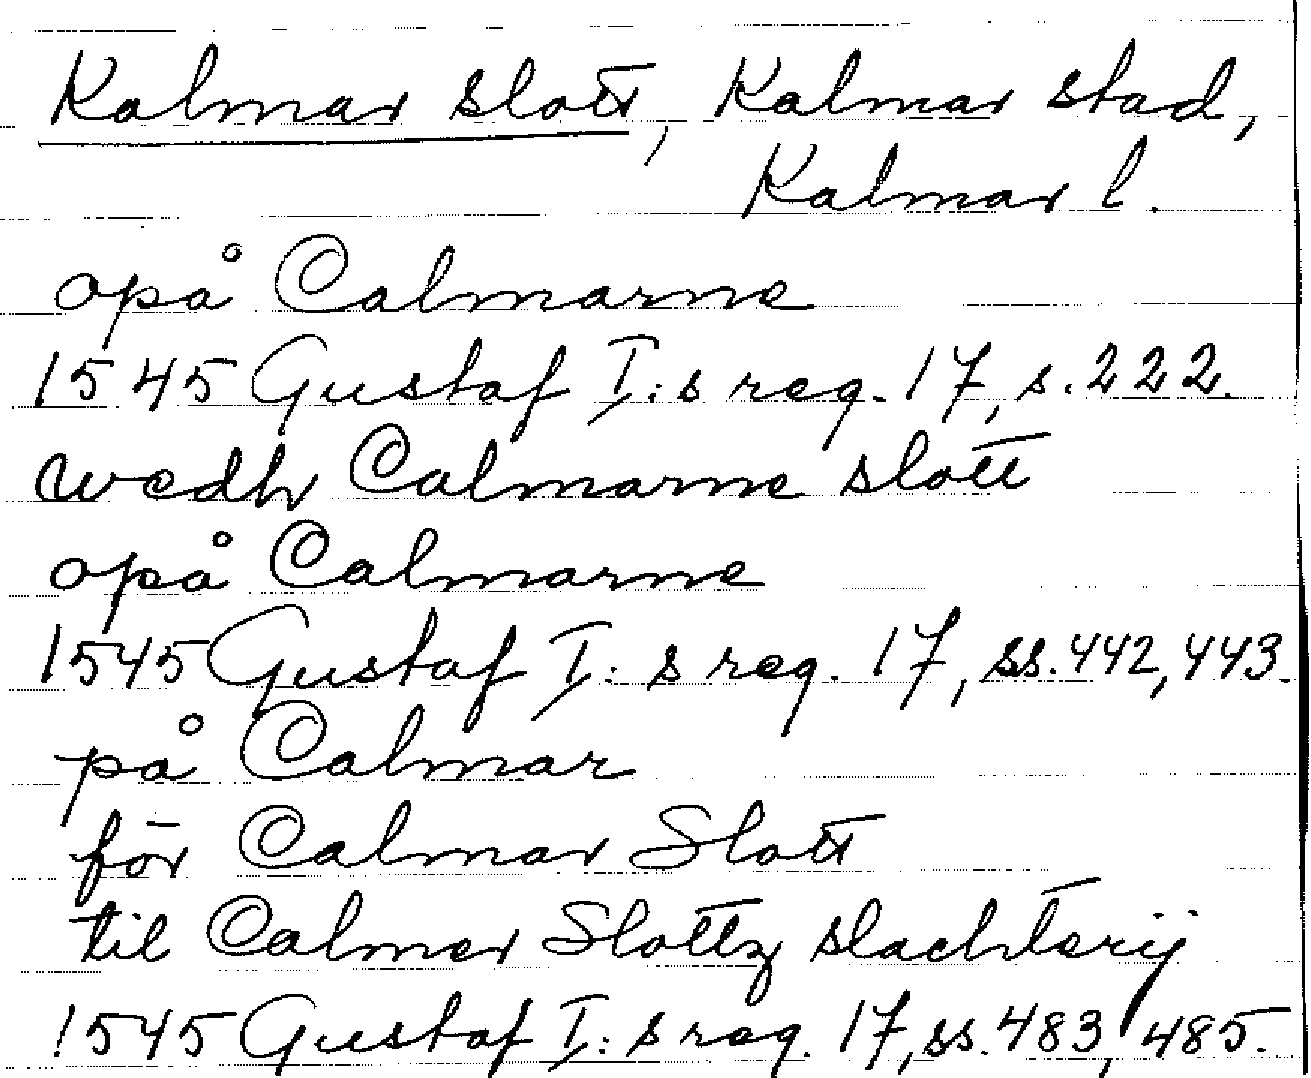 Kalmar slott, Kalmar stad,
Kalmar l.
opå Calmarne
1545 Gustaf I:s reg. 17, s. 222.
wedh Calmarne slott
opå Calmarne
1545 Gustaf I:s reg. 17, ss. 442, 443.
på Calmar
för Calmar Slott
til Calmer Slottz slachterij
1545 Gustaf I:s reg. 17, ss. 483, 485.